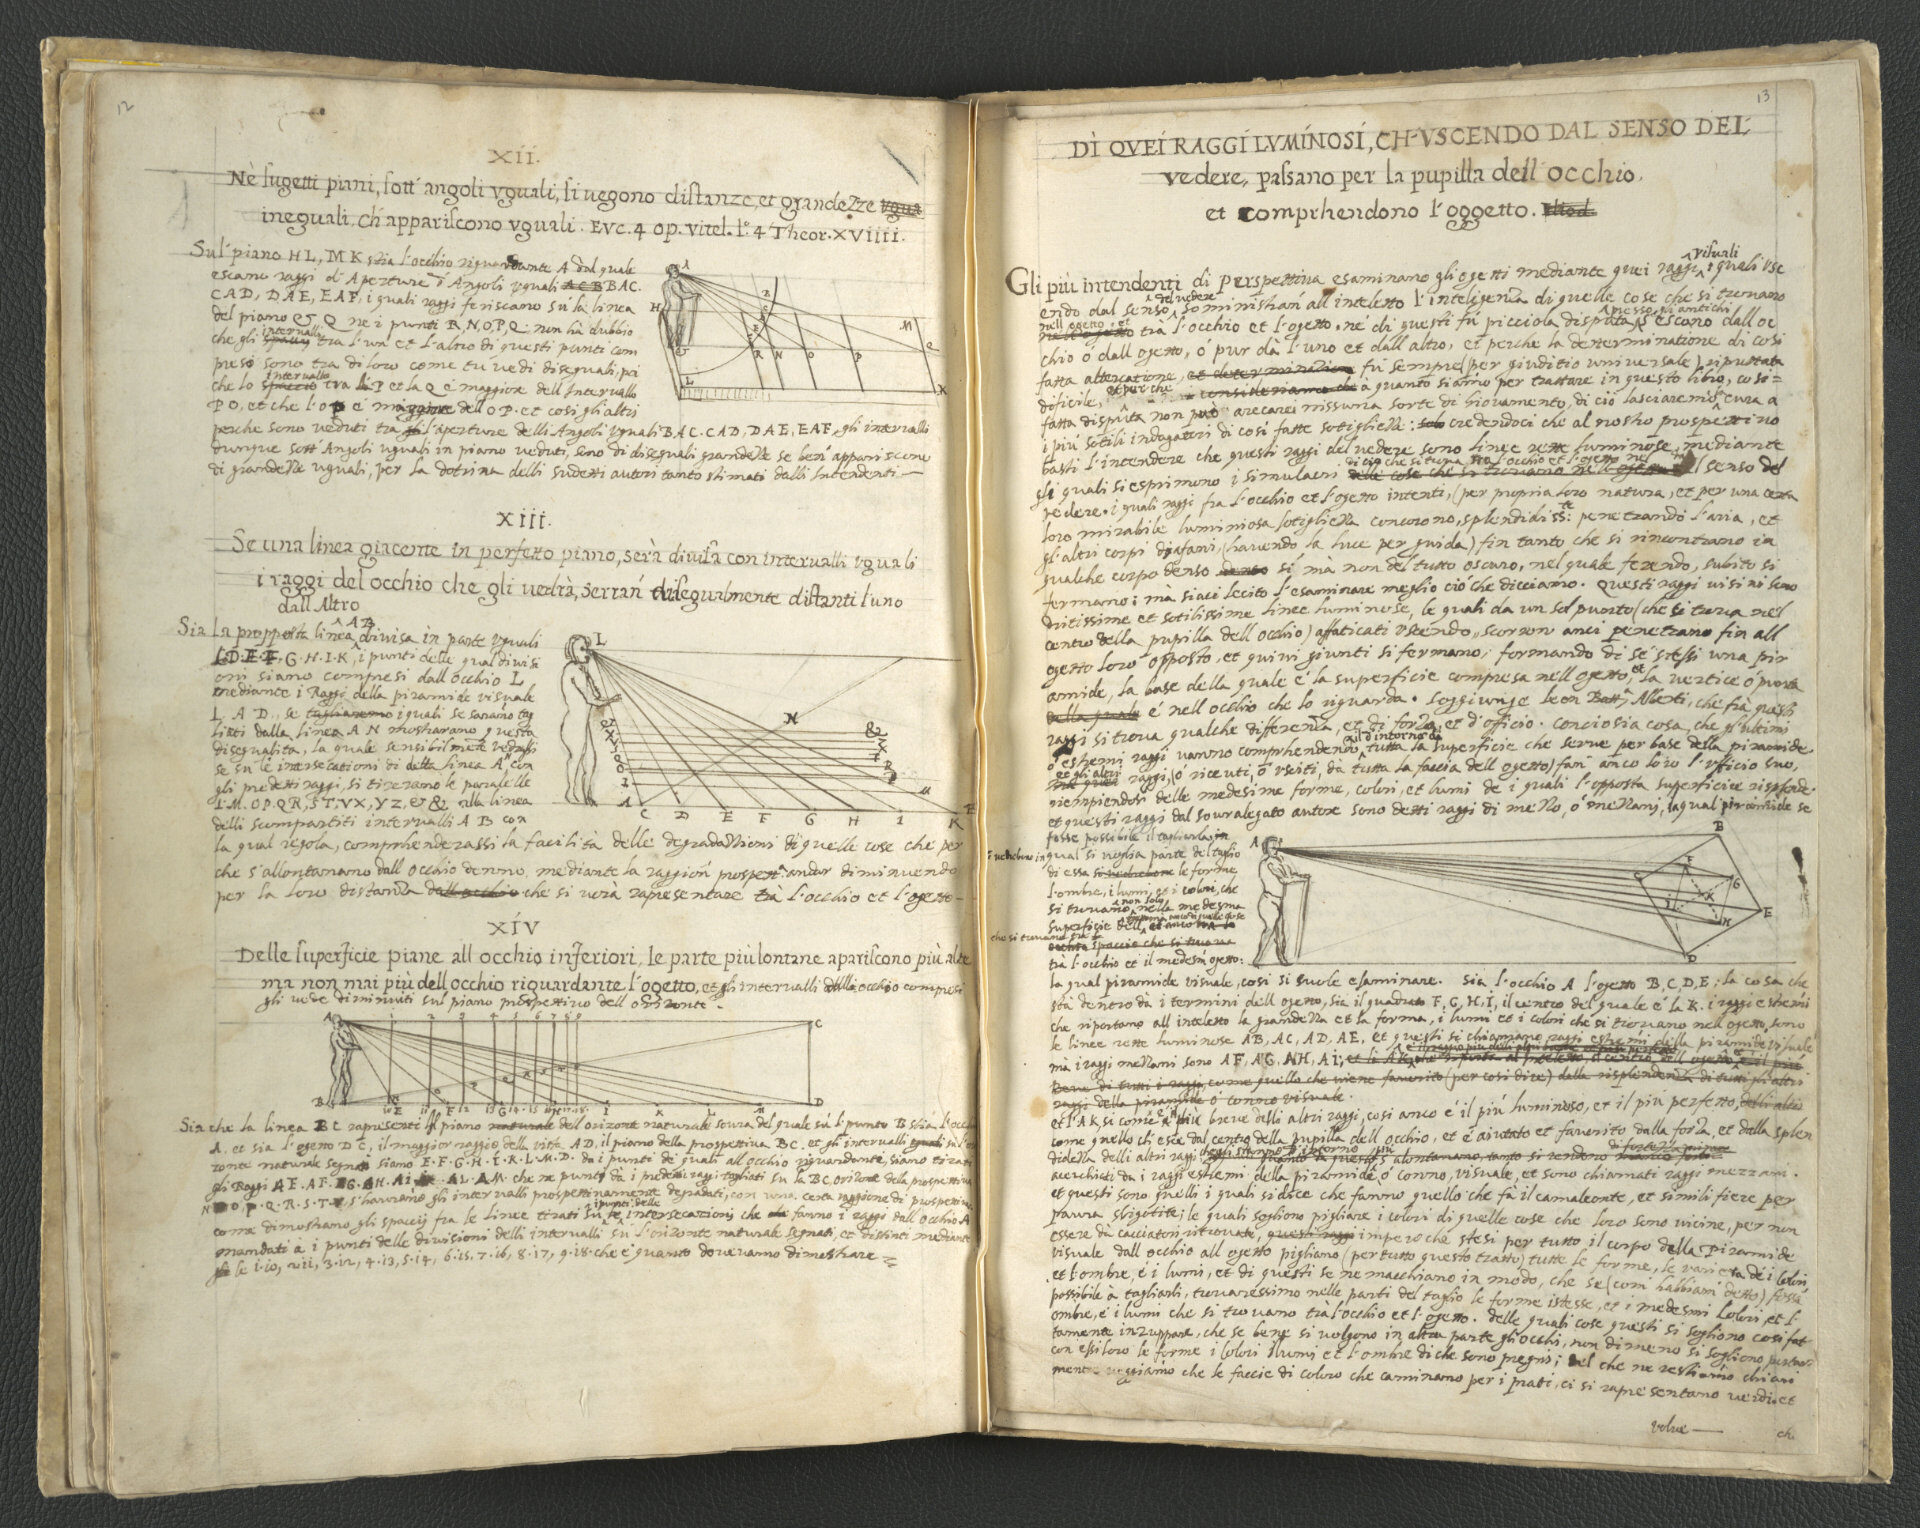 12
XII.
Nè sugetti piani, sott' angoli uguali, si uegono distanze, et grandezze
ineguali, ch' appariscono uguali. Euc. 4 op. vitel. l.º 4 Theor. XVIIII.
Sul piano HL, MK stia l'occhio riguardante A dal quale
escano raggi d'Aperture ò Angoli uguali BAC.
CAD, DAE, EAF, i quali raggi feriscano sù la linea
del piano & Q ne i punti R, N, O, P, Q non hà dubbio
che gli intervalli tra l'un et l'altro di questi punti com
presi sono tra di loro come tu vedi diseguali, poi
che lo intervallo tra P et la Q è maggiore dell Intervallo
P O, et che l'O P è maggiore dell O P. et cosi gli altri
perche sono veduti tra l'aperture delli Angoli uguali BAC. CAD, DAE, EAF, gli intervalli
dunque sott Angoli uguali in piano veduti, sono di diseguali grandezze se ben appariscono
di grandezze uguali, per la dotrina delli sudetti autori tanto stimati dalli Intendenti —
A H B M Q R N O P L K
XIII.
Se una linea giacente in perfetto piano, serà divisa con intervalli uguali
i raggi del occhio che gli vedrà, serran disegualmente distanti l'uno
dall Altro
Sia la propposta linea AB divisa in parte uguali
C. D. E. F. G. H. I. K, i punti delle qual divisi
oni siano compresi dall occhio L
mediante i Raggi della piramide visuale
L. A D, se i quali se saranno tag
liati dalla linea A N mostrarano questa
disegualita, la quale sensibilmēte vedrassi
se su le intersecationi di detta linea AN con
gli predetti raggi, si tireranno le paralelle
I. M. O P. Q R, S T, V X, Y Z, & & alla linea
delli scompartiti intervalli A B con
la qual regola, comprhenderassi la facilità delle degradazzioni di quelle cose che per
che s'allontanano dall occhio denno, mediante la raggion prospett.ª andar diminuendo
per la loro distanza che si vorà rapresentare trà l'occhio et l'ogetto —
L N & A C D E F G H I K B M
XIV
Delle superficie piane all occhio inferiori, le parte più lontane apariscono più alte
ma non mai più dell occhio riguardante l'ogetto, et gli intervalli dall occhio compresi
gli vede diminuiti sul piano prospettivo dell orizonte.
A 1 2 3 4 5 6 7 8 9 C
B 10 E 11 F 12 13 G 14 15 16 17 18 I K L M D
Sia che la linea BC rapresenti il piano dell orizonte naturale soura del quale sù l punto B stia l'occhio
A. et sia l'ogetto DC, il maggior raggio della vista AD, il piano della prospettiva BC, et gli intervalli su l'ori
zonte naturale segnati siano E. F. G. H. I. K. L. M. D. da i punti de quali all occhio riguardante, siano tirati
gli Raggi AE. AF. AG. AH. AI. AK. AL. AM che ne punti da i predetti raggi tagliati su la BC orizonte della prospettiva
N O. P. Q. R. S. T. V s'havrano gli intervalli prospettivamente degradati, con una certa raggione di prospettiva
come dimostrano gli spacij fra le linee tirati su i punti delle intersecazioni che fanno i raggi dall occhio A
mandati à i punti delle divisioni delli intervalli su l'orizonte naturale segnati, et distinti mediante
le 1.10, 2.11, 3.12, 4.13, 5.14, 6.15, 7.16, 8.17, 9.18 che è quanto dovevamo dimostrare
13
DI QUEI RAGGI LUMINOSI, CH'USCENDO DAL SENSO DEL
vedere, passano per la pupilla dell occhio,
et comprhendono l'oggetto.
Gli più intendenti di perspettiva esaminano gli ogetti mediante quei raggi visuali, i quali usc
endo dal senso del vedere somministran all inteletto l'inteligenza di quelle cose che si trovano
nell ogetto, et trà l'occhio et l'ogetto. né di questi fù picciola disputa apresso gli antichi s'escano dall oc
chio ó dall ogetto, ó pur dà l'uno et dall altro, et perche la determinatione di cosi
fatta altercatione, fù sempre (per giuditio universale) riputata
dificile, et perche à quanto siamo per trattare in questo libro, cosi=
fatta disputa non può arecarci nissuna sorte di giovamento, di ciò lasciaremo cura a
i più sotili indagatori di cosi fatte sotigliezze: credendoci che al nostro prospettivo
basti l'intendere che questi raggi del vedere sono linee rette luminose, mediante
gli quali si esprimono i simulacri di ciò che si trova tra l'occhio et l'ogetto nel senso del
vedere. i quali raggi fra l'occhio et l'ogetto intenti, (per propria loro natura, et per una certa
loro mirabile luminosa sotigliezza concorono, splendidiss.te penetrando l'aria, et
gl'altri corpi diafani, (havendo la luce per guida) fin tanto che si rincontrano in
qualche corpo denso si ma non del tutto oscuro, nel quale ferendo, subito si
fermano; ma siaci lecito l'esaminare meglio ciò che dicciamo. Questi raggi visivi sono
dritissime et sotilissime linee luminose, le quali da un sol punto (che si trova nel
centro della pupilla dell occhio) affaticati uscendo, scorron anci penetrano fin all
ogetto loro opposto, et quivi giunti si fermano; formando di sé stessi una pir
amide, la base della quale é la superficie compresa nell ogetto, et la vertice ó punta
é nell occhio che lo riguarda. Soggiunge Leon Batt.ª Alberti, che frà questi
raggi si trova qualche differenza, et di forza, et d'officio. conciosia cosa, che gl'ultimi
ó estremi raggi vanno comprhendendo all'intorno di tutta la superficie che serve per base della piramide
et gli altri raggi, (ó riceuti, ó usciti, da tutta la faccia dell ogetto) fan anco loro l'ufficio suo,
riempiendosi delle medesime forme, colori, et lumi de i quali l'opposta superficie risplende
et questi raggi dal sovralegato autore sono detti raggi di mezzo, ó mezzani, la qual piramide se
fosse possibile il tagliarla, in
qual si voglia parte del taglio
di essa le forme,
l'ombre, i lumi, et i colori, che
si trovano non solo nella medesma
superficie dell
che si trovano fra l
trà l'occhio et il medesm ogetto:
A B F G C I K H E D
la qual piramide visuale, cosi si suole esaminare. Sia l'occhio A l'ogetto B, C, D, E, la cosa che
stà dentro dà i termini dell ogetto, sia il quadrato F, G, H, I, il centro del quale é la K. i raggi estremi
che riportano all inteletto la grandezza et la forma, i lumi et i colori che si trovano nell ogetto, sono
le linee rette luminose AB, AC, AD, AE, et questi si chiamano raggi estremi della piramide visuale
mà i raggi mezzani sono AF, AG, AH, AI,
et l'AK, si come é il più breve delli altri raggi, cosi anco é il più luminoso, et il più perfetto,
come quello ch'esce dal centro della pupilla dell occhio, et é aiutato et favorito dalla forza et dalla splen
didezza delli altri raggi
acerchiati da i raggi estremi della piramide ó conno, visuale, et sono chiamati raggi mezzani.
et questi sono quelli i quali si dice che fanno quello che fà il camaleonte, et simili fiere per
paura sbigotite; le quali sogliono pigliare i colori di quelle cose che loro sono vicine, per non
essere dà cacciatori ritrovate, imperoche stesi per tutto il corpo della Piramide
visuale dall occhio all ogetto pigliano (per tutto questo tratto) tutte le forme, le varieta de i colori
et l'ombre, é i lumi, et di questi se ne macchiano in modo, che se (com' habbiam detto) fosse
possibile à tagliarli, trovaressimo nelle parti del taglio le forme istesse, et i medesmi Colori, et l'
ombre, é i lumi che si trovano trà l'occhio et l'ogetto. delle quali cose questi si sogliono cosi fat
tamente inzuppare, che se bene si volgono in altra parte gli occhi, non dimeno si sogliono portar
con essi loro le forme i colori i lumi et l'ombre di che sono pregni; del che ne restiamo chiari
mentre veggiamo che le faccie di coloro che caminano per i prati, ci si rapresentano verdi, et
volue —
ch